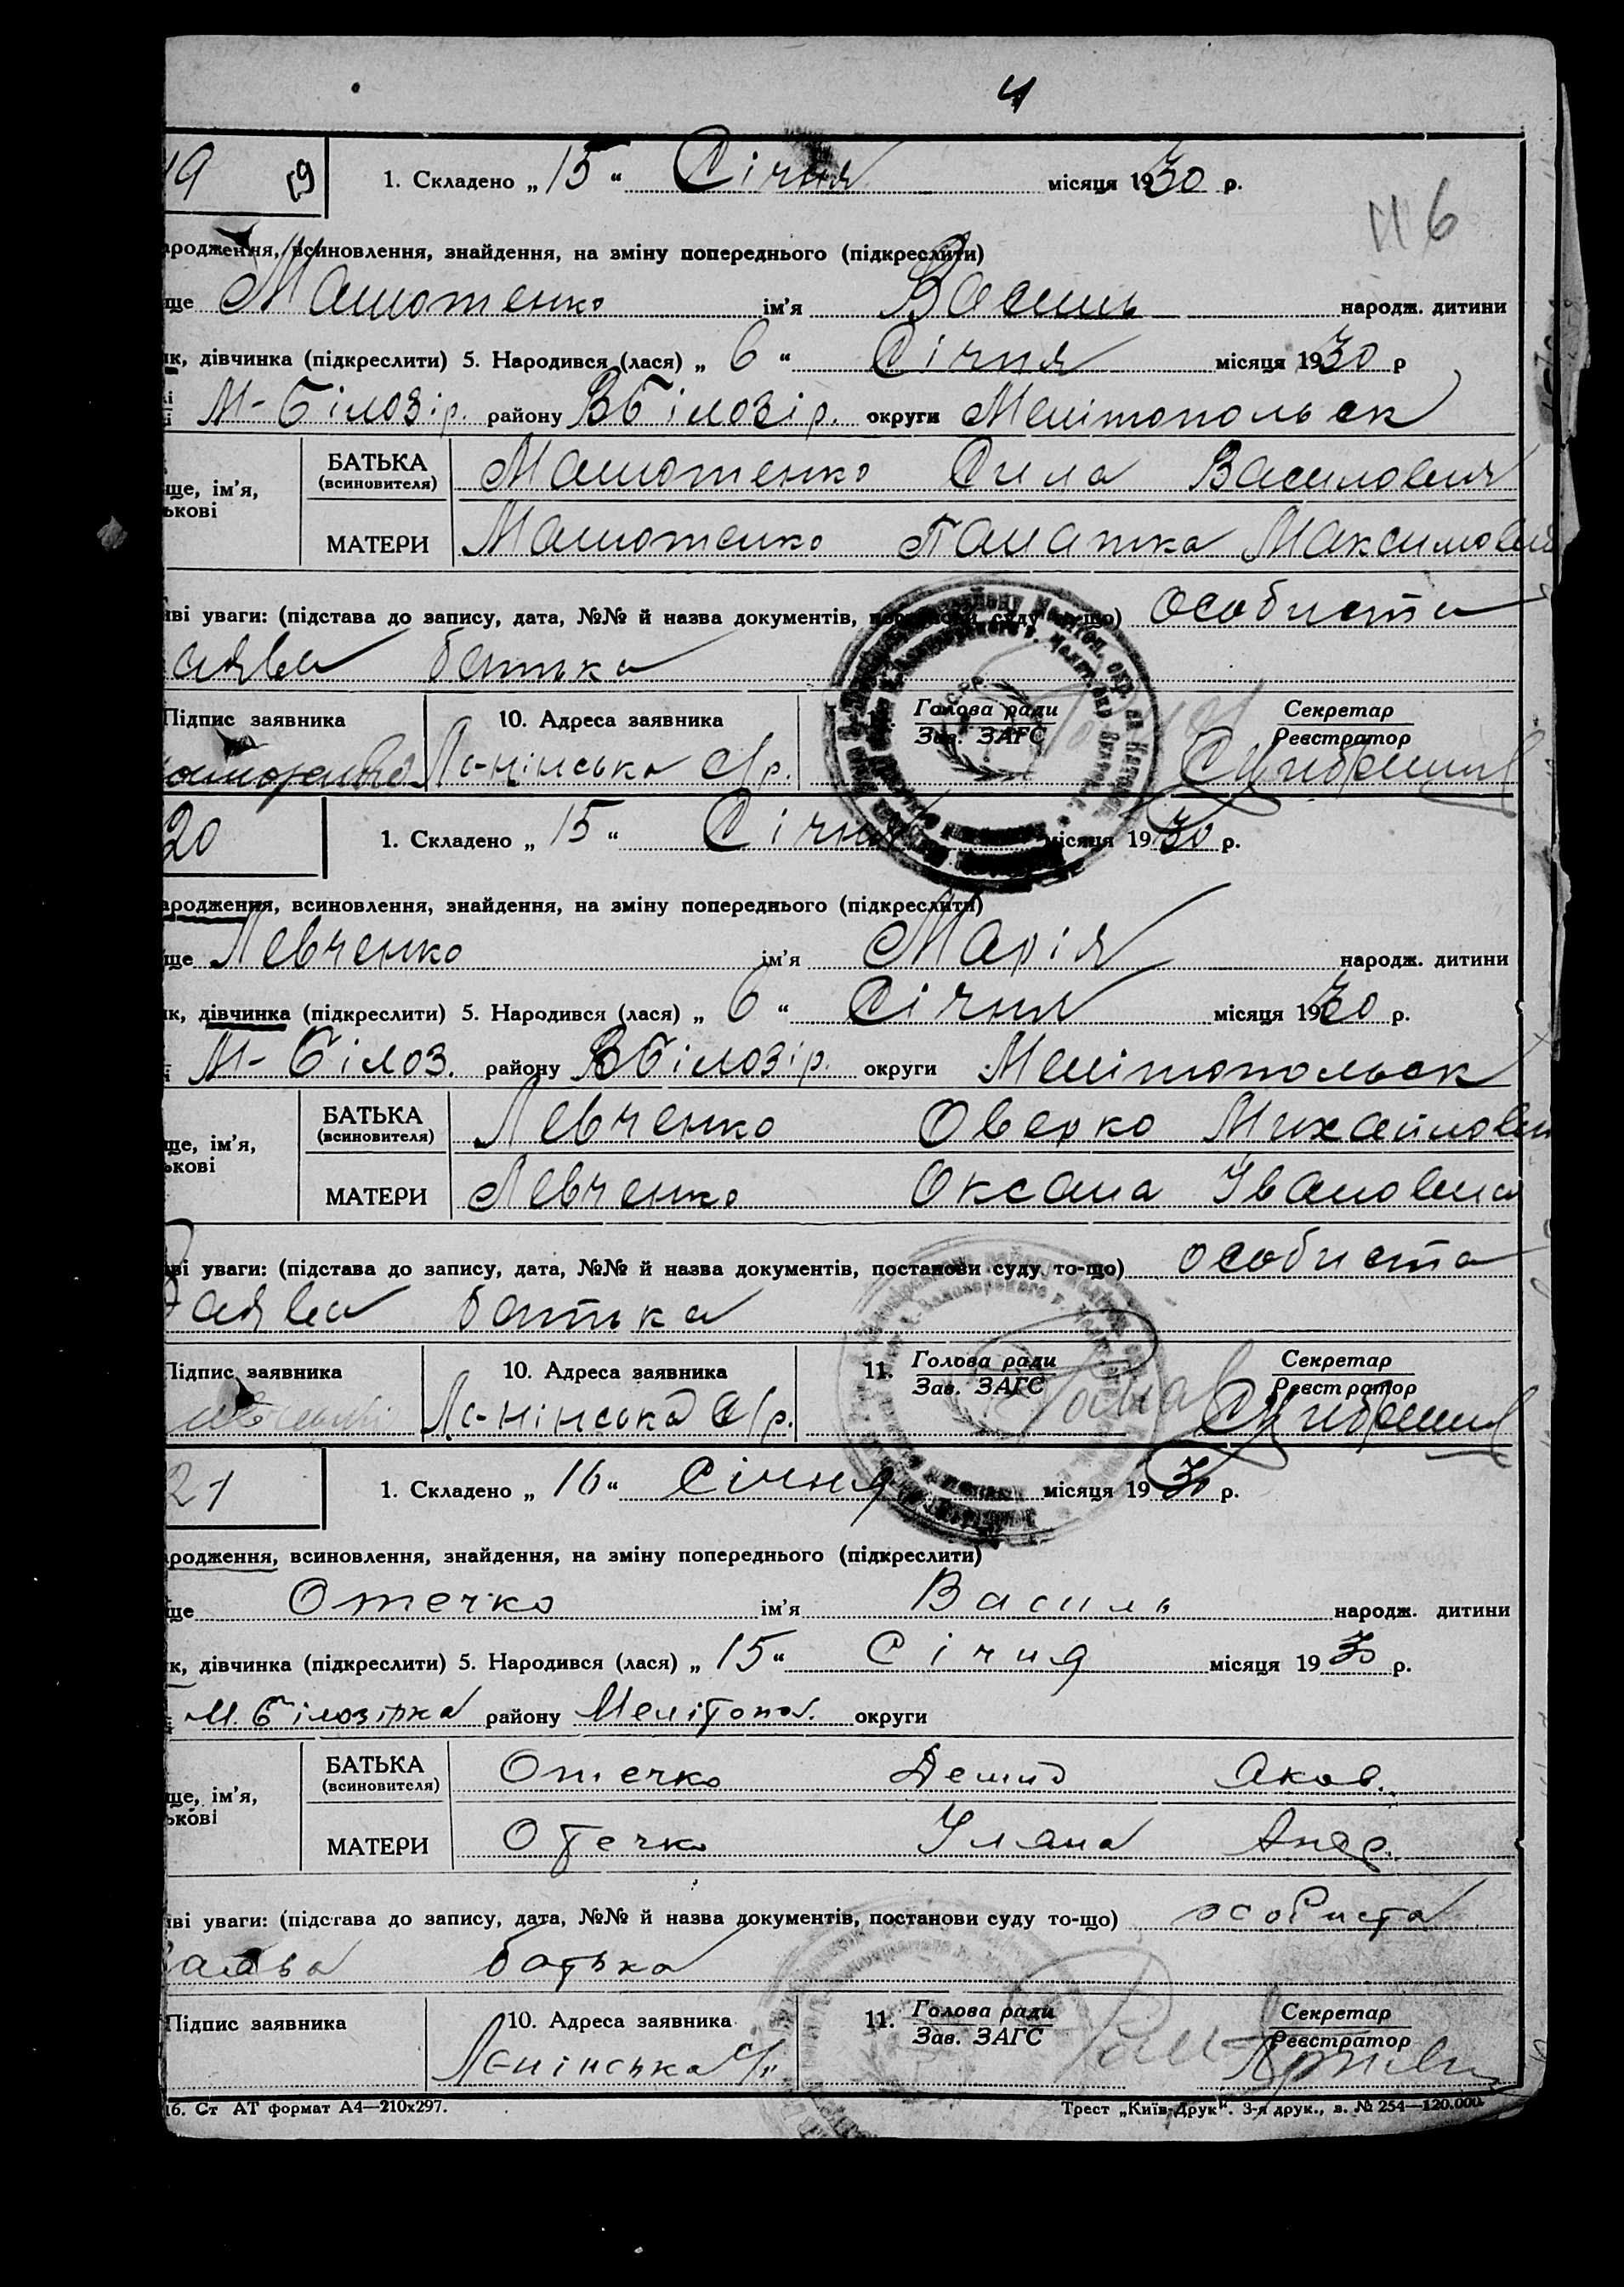 4
19 19 1. Складено „ 15 “ Січня місяця 1930 р.
116
ародження, всиновлення, знайдення, на зміну попереднього (підкреслити)
ще Машотенко ім’я Василь народж. дитини
ик, дівчинка (підкреслити) 5. Народився (лася) „ 6 “ Січня місяця 1930 р
М-Білозір. району ВБілозір. округи Мелітопольск
ще, ім’я,
ькові
БАТЬКА
(всиновителя)
Машотенко Сила Василович
МАТЕРИ
Машотенко Максимовн
иві уваги: (підстава до запису, дата, №№ й назва документів, постанови суду то-що) особиста
аява батька
Підпис заявника 10. Адреса заявника Голова ради Секретар
Зав. ЗАГС Реєстратор
Ленінська с/р.
20 1. Складено „ 15 “ Січня місяця 1930 р.
ародження, всиновлення, знайдення, на зміну попереднього (підкреслити)
ще Левченко ім’я Марія народж. дитини
ик, дівчинка (підкреслити) 5. Народився (лася) „ 6 “ Січня місяця 1930 р.
М-Білоз. району ВБілозір. округи Мелітопольск
ще, ім’я,
ькові
БАТЬКА
(всиновителя)
Левченко Оверко Михайлович
МАТЕРИ
Левченко Оксана Івановна
ві уваги: (підстава до запису, дата, №№ й назва документів, постанови суду то-що) особиста
Заява батька
Підпис заявника 10. Адреса заявника 11. Голова ради Секретар
Зав. ЗАГС Реєстратор
Ленінська с/р.
21 1. Складено „ 16 “ Січня місяця 1930 р.
ародження, всиновлення, знайдення, на зміну попереднього (підкреслити)
ще Отечко ім’я Василь народж. дитини
ик, дівчинка (підкреслити) 5. Народився (лася) „ 15 “ Січня місяця 1930 р.
М. Білозірка району Мелітопол. округи
ще, ім’я,
ькові
БАТЬКА
(всиновителя)
Отечко Демид Яков.
МАТЕРИ
Отечко Уляна Андр.
иві уваги: (підстава до запису, дата, №№ й назва документів, постанови суду то-що) особиста
заява батька
Підпис заявника 10. Адреса заявника 11. Голова ради Секретар
Зав. ЗАГС Реєстратор
Ленінська с/р
16. Ст АТ формат А4—210х297. Трест „Київ-Друк“. 3-я друк., в. № 254—120.000.